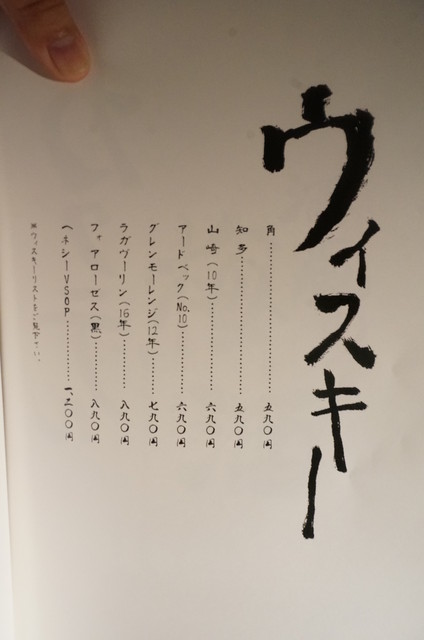 ウィスキー
角…………………五九〇円
知多…………………五九〇円
山崎(10年)…………………六九〇円
アードベック(No.10)…………………六九〇円
グレンモーレンジ(12年)…………七九〇円
ラガヴーリン(16年)…………八九〇円
フォアローゼス(黒)…………八九〇円
ヘネシーVSOP…………一、二〇〇円
※ウィスキーリストをご覧下さい。